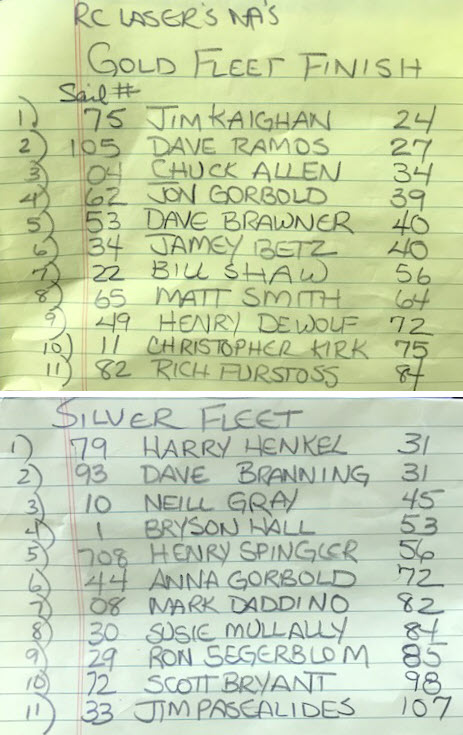 RC LASER'S NA'S
GOLD FLEET FINISH
Sail #
1) 75 JIM KAIGHAN 24
2) 105 DAVE RAMOS 27
3) 04 CHUCK ALLEN 34
4) 62 JON GORBOLD 39
5) 53 DAVE BRAWNER 40
6) 34 JAMEY BETZ 40
7) 22 BILL SHAW 56
8) 65 MATT SMITH 64
9) 49 HENRY DEWOLF 72
10) 11 CHRISTOPHER KIRK 75
11) 82 RICH FURSTOSS 84
SILVER FLEET
1) 79 HARRY HENKEL 31
2) 93 DAVE BRANNING 31
3) 10 NEILL GRAY 45
4) 1 BRYSON HALL 53
5) 708 HENRY SPINGLER 56
6) 44 ANNA GORBOLD 72
7) 08 MARK DADDINO 82
8) 30 SUSIE MULLALLY 84
9) 29 RON SEGERBLOM 85
10) 72 SCOTT BRYANT 98
11) 33 JIM PASCALIDES 107